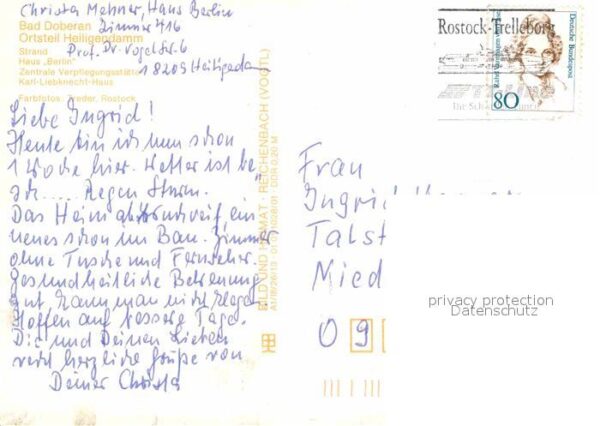 Christa Mehner, Haus Berlin
Bad Doberan Zimmer 716
Ortsteil Heiligendamm
Prof. Dr. Vogel Str. 6
Strand
Haus „Berlin"
Zentrale Verpflegungsstätte
18209 Heiligendamm
Karl-Liebknecht-Haus
Farbfotos: Rostock
Liebe Ingrid!
Heute bin ich nun schon
1 Woche hier. Wetter ist be-
Regen Sturm.
Das Heim ein
neues schon im Bau. Zimmer
ohne Dusche und Fernseher.
Gesundheitliche Betreuung
gut kann man nicht klagen
Hoffen auf bessere Tage.
Dir und Deinen Lieben
recht herzliche Grüße von
Deiner Christa
BILD UND HEIMAT · REICHENBACH (VOGTL)
DDR 0,20 M
Rostock-Trelleborg
Deutsche Bundespost
80
Frau
Ingrid
Talst
Mied
0 9
privacy protection
Datenschutz